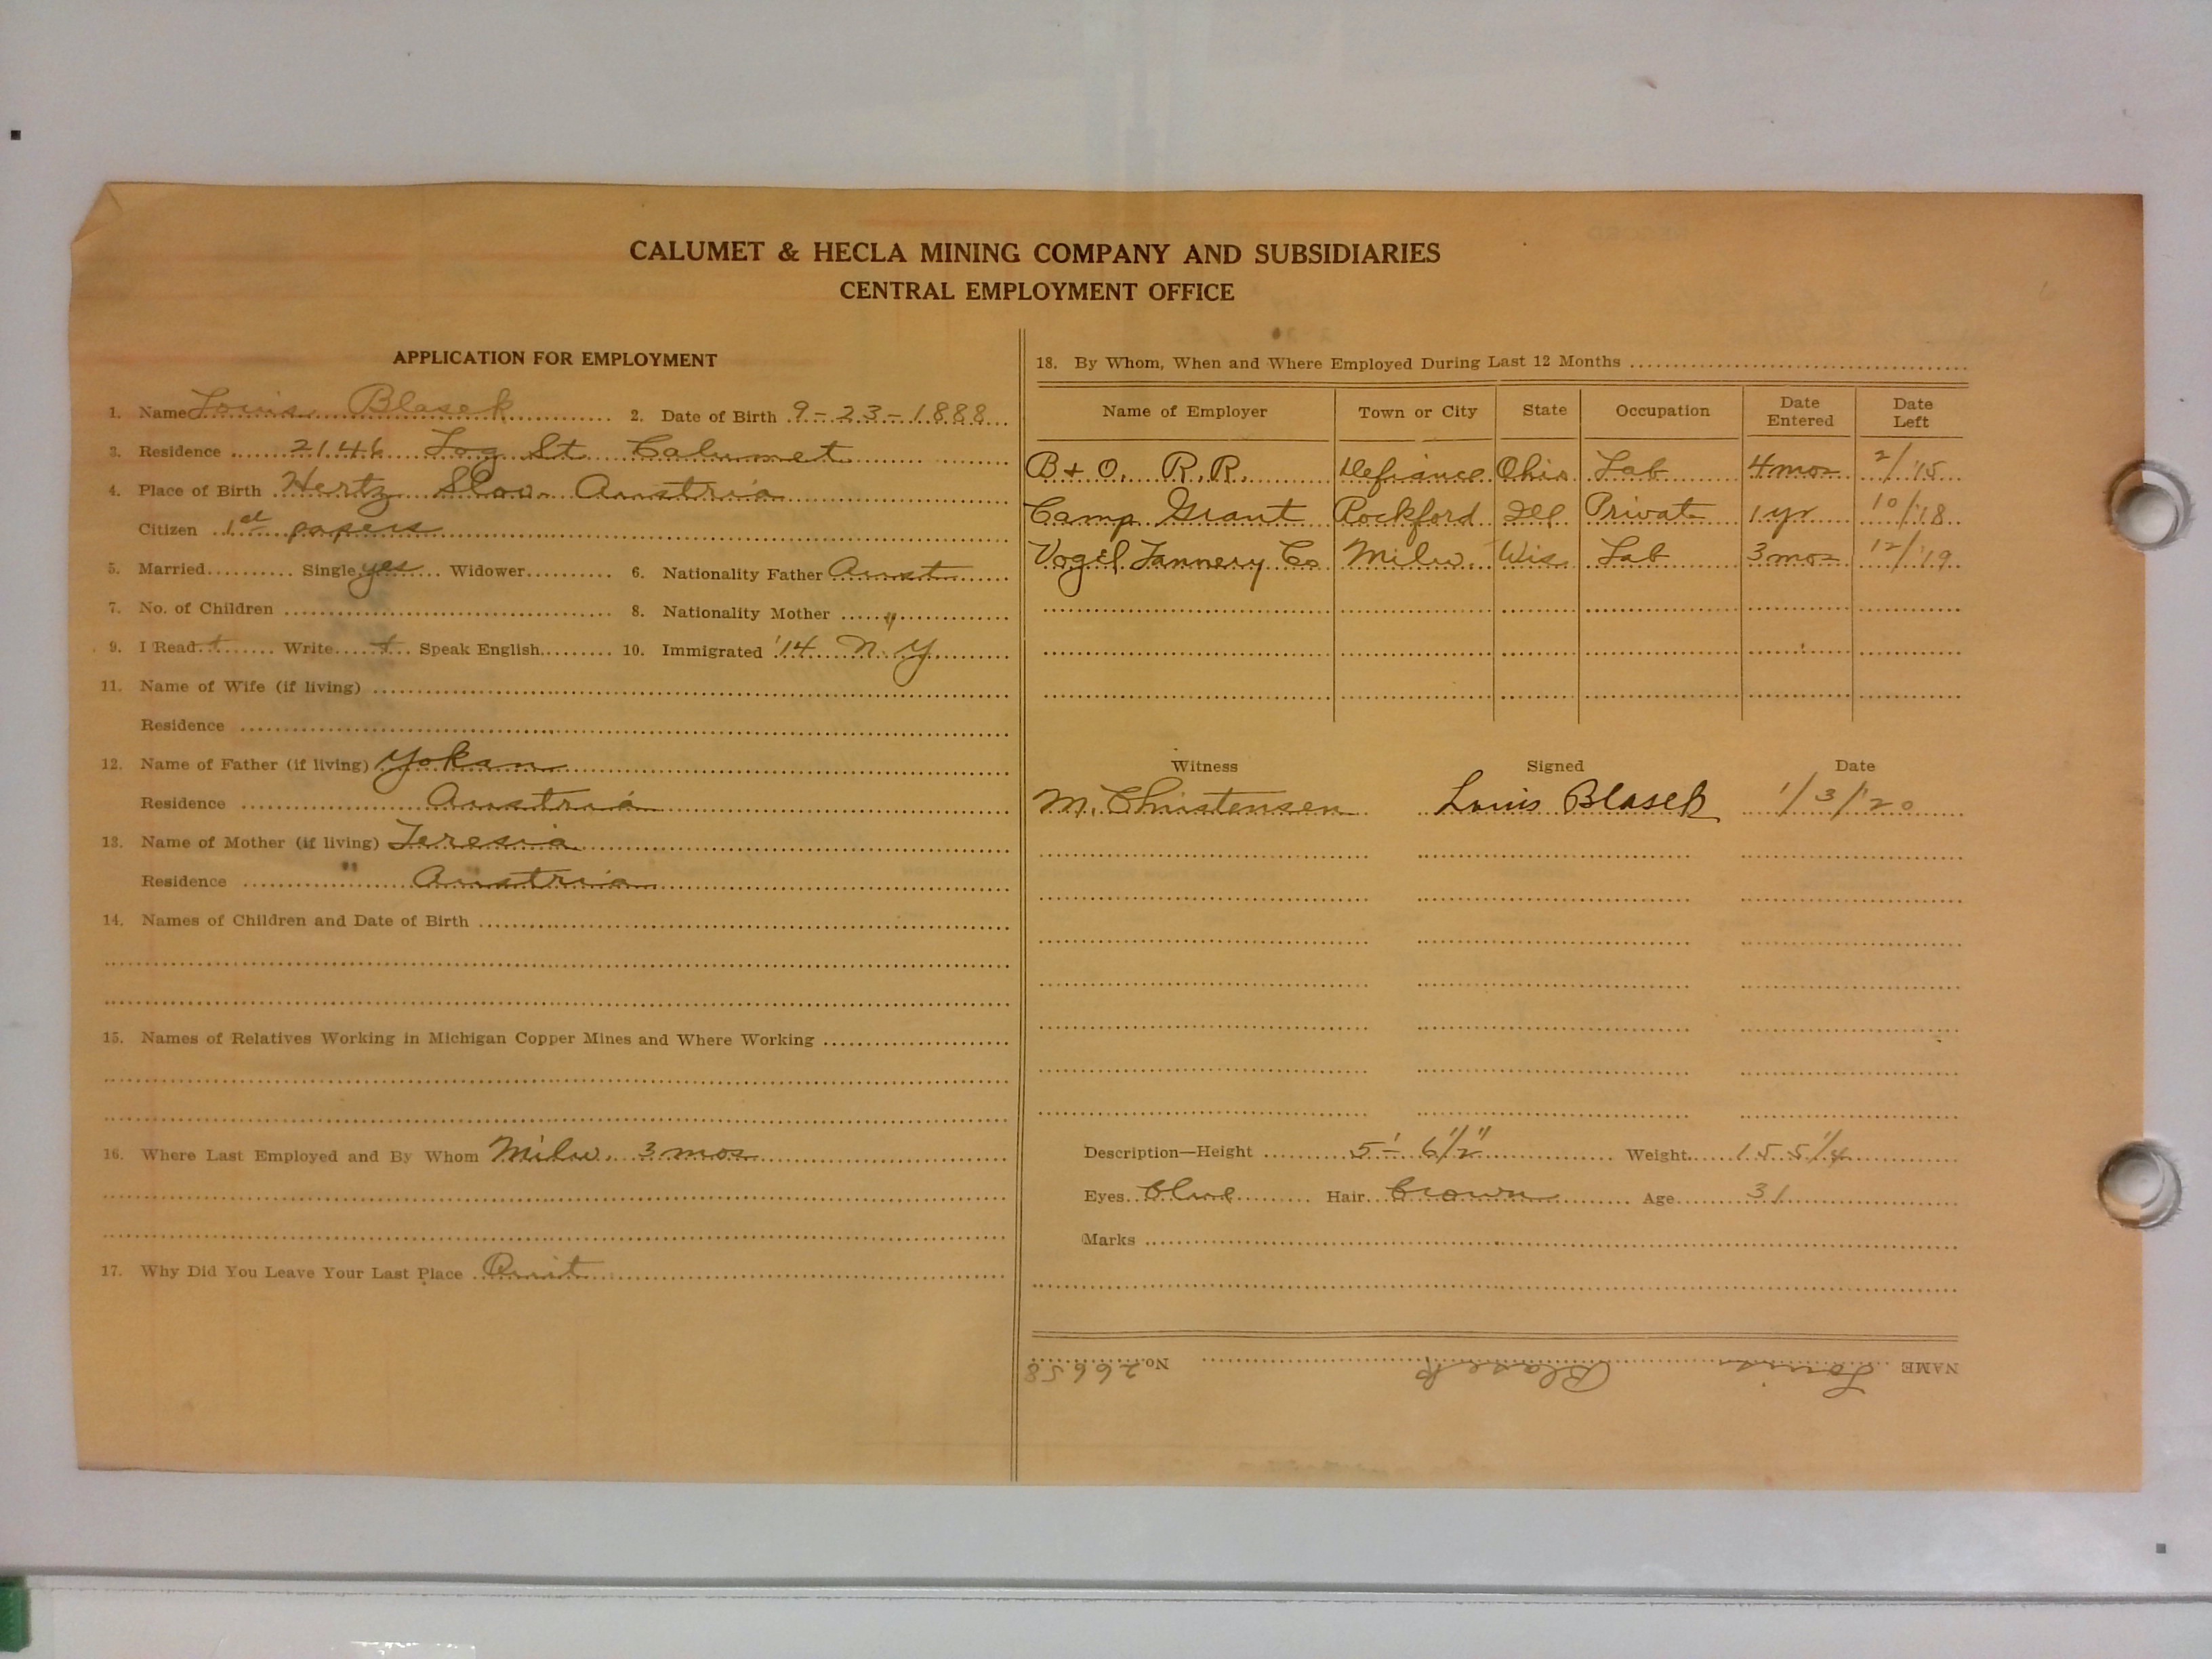 CALUMET & HECLA MINING COMPANY AND SUBSIDIARIES
CENTRAL EMPLOYMENT OFFICE
APPLICATION FOR EMPLOYMENT
1. Name Louis Blasek 2. Date of Birth 9-23-1888
3. Residence 2146 Log St Calumet
4. Place of Birth Hertz Slav. Austria
Citizen 1st papers
5. Married Single yes Widower 6. Nationality Father Aust
7. No. of Children 8. Nationality Mother "
9. I Read + Write + Speak English 10. Immigrated '14 N.Y
11. Name of Wife (if living)
Residence
12. Name of Father (if living) Yokan
Residence Austria
13. Name of Mother (if living) Teresia
Residence Austria
14. Names of Children and Date of Birth
15. Names of Relatives Working in Michigan Copper Mines and Where Working
16. Where Last Employed and By Whom Milw. 3 mos
17. Why Did You Leave Your Last Place Quit
18. By Whom, When and Where Employed During Last 12 Months
Name of Employer Town or City State Occupation Date Entered Date Left
B + O. R.R. Defiance Ohio Lab 4 mos 2/'15
Camp Grant Rockford Ill Private 1 yr 10/'18
Vogel Tannery Co Milw. Wis. Lab 3 mos 12/'19
Witness Signed Date
M. Christensen Louis Blasek 1/3/'20
Description—Height 5' 6 1/2" Weight 155 1/4
Eyes Blue Hair Brown Age 31
Marks
NAME Louis Blasek No. 26658